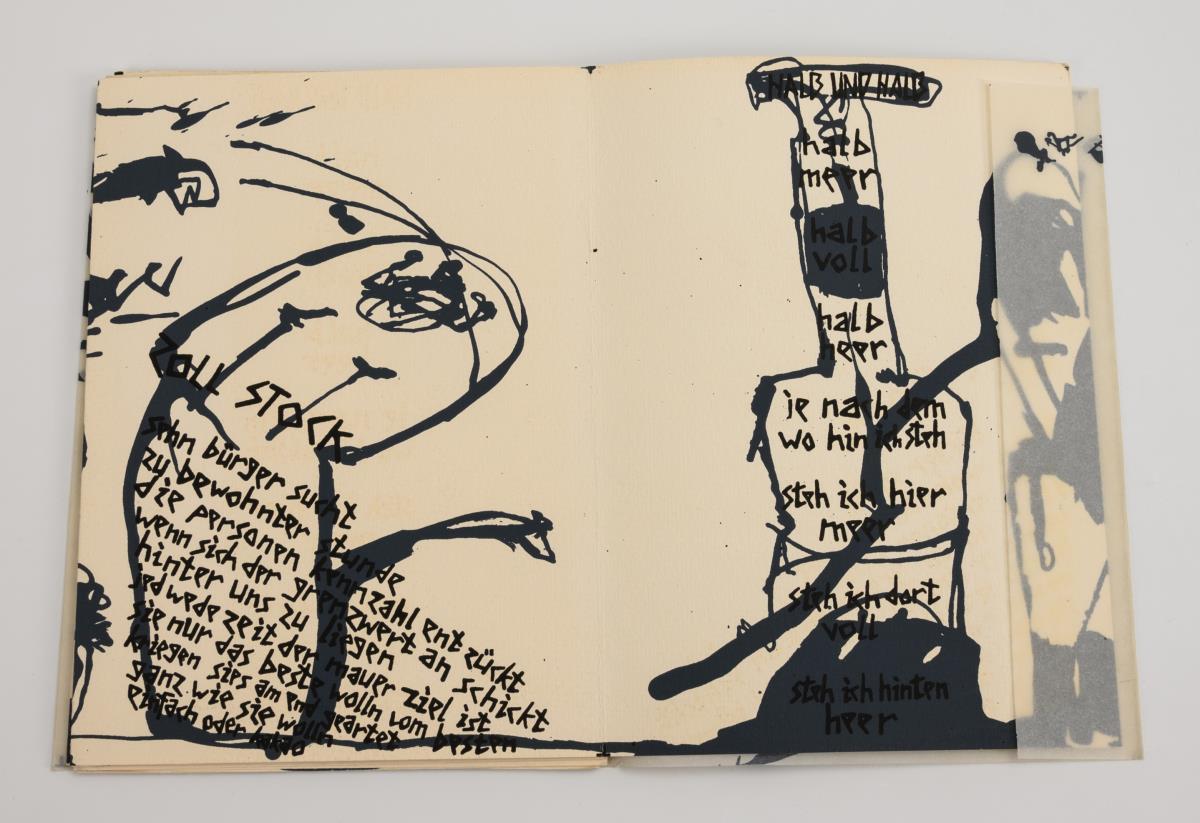 ZOLL STOCK
sehn bürger sucht
zu bewohnter stunde
die personen kennzahl ent zückt
wenn sich der grenzwert an schickt
hinter uns zu liegen
jed wede zeit der mauer ziel ist
sie nur das beste wolln vom besten
kriegen sies am end geartet
ganz wie sie wolln
einfach oder kakao
HALB UND HALB
halb
meer
halb
voll
halb
heer
je nach dem
wo hin ich steh
steh ich hier
meer
steh ich dort
voll
steh ich hinten
heer